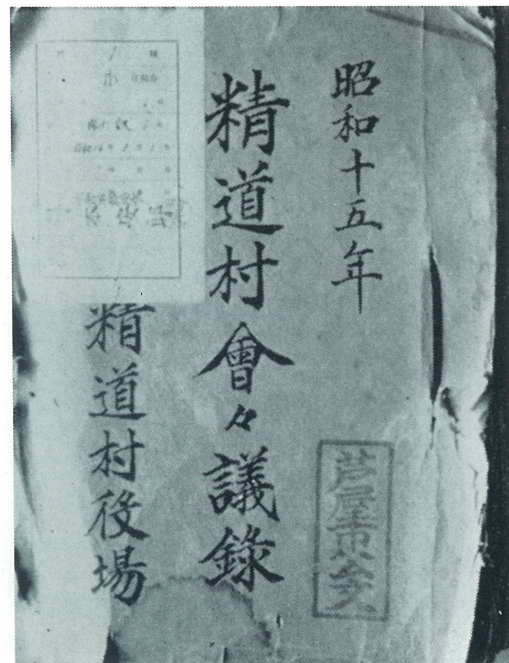 昭和十五年
精道村會々議錄
精道村役場
芦屋市